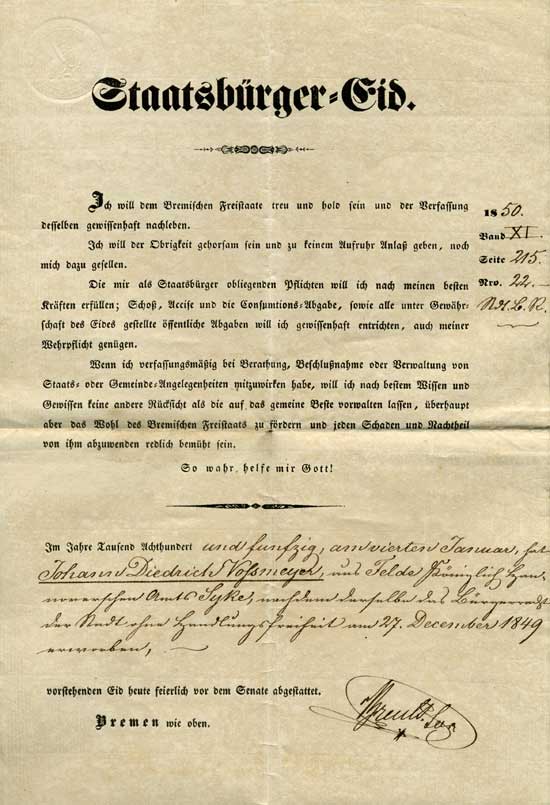 Staatsbürger-Eid.
Ich will dem Bremischen Freistaate treu und hold sein und der Verfassung
desselben gewissenhaft nachleben.
Ich will der Obrigkeit gehorsam sein und zu keinem Aufruhr Anlaß geben, noch
mich dazu gesellen.
Die mir als Staatsbürger obliegenden Pflichten will ich nach meinen besten
Kräften erfüllen; Schoß, Accise und die Consumtions-Abgabe, sowie alle unter Gewähr-
schaft des Eides gestellte öffentliche Abgaben will ich gewissenhaft entrichten, auch meiner
Wehrpflicht genügen.
Wenn ich verfassungsmäßig bei Berathung, Beschlußnahme oder Verwaltung von
Staats- oder Gemeinde-Angelegenheiten mitzuwirken habe, will ich nach bestem Wissen und
Gewissen keine andere Rücksicht als die auf das gemeine Beste vorwalten lassen, überhaupt
aber das Wohl des Bremischen Freistaats zu fördern und jeden Schaden und Nachtheil
von ihm abzuwenden redlich bemüht sein.
So wahr helfe mir Gott!
1850.
Band XI.
Seite 215.
Nro. 22.
Im Jahre Tausend Achthundert und funfzig, am vierten Januar, hat
Johann Diedrich Vossmeyer, aus Felde Königlich Han-
noverschen Amts Syke, nachdem derselbe das Bürgerrecht
der Stadt ohne Handlungsfreiheit am 27. December 1849
erworben, —
vorstehenden Eid heute feierlich vor dem Senate abgestattet.
Bremen wie oben.